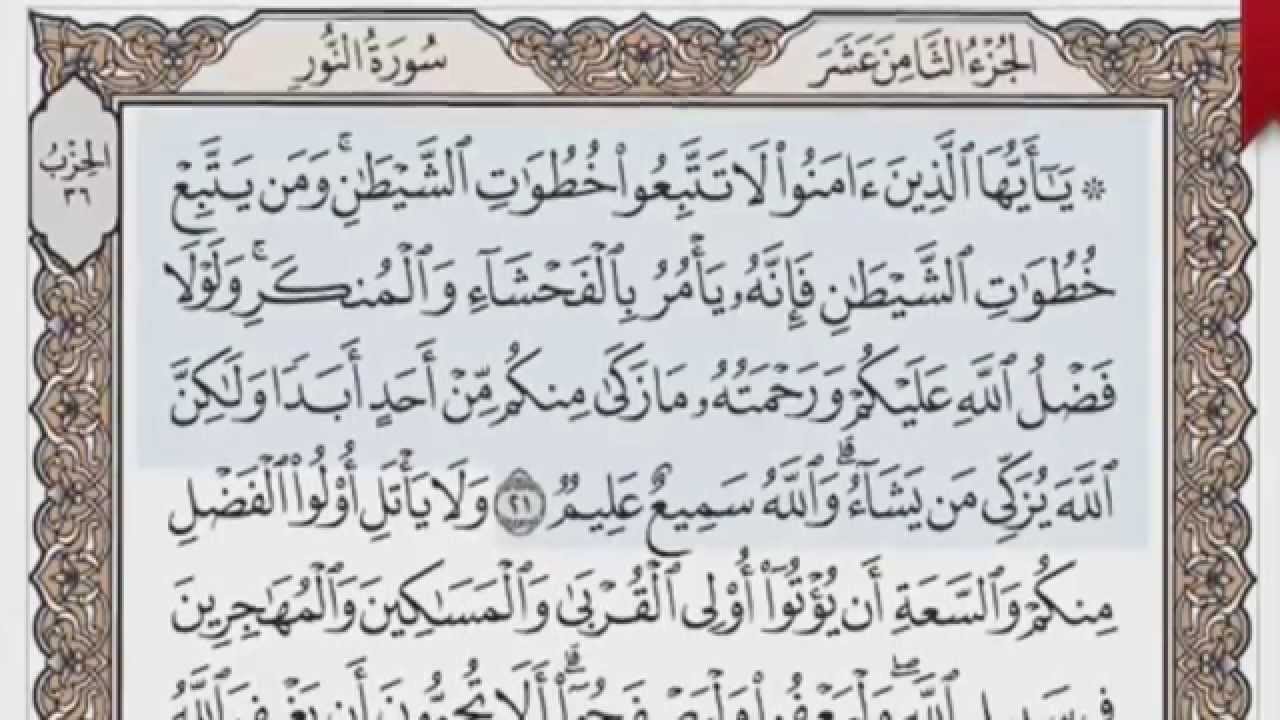 الجزء الثامن عشر
سورة النور
الحزب
٣٦
۞ يَـٰٓأَيُّهَا ٱلَّذِينَ ءَامَنُوا۟ لَا تَتَّبِعُوا۟ خُطُوَٰتِ ٱلشَّيْطَـٰنِ ۚ وَمَن يَتَّبِعْ
خُطُوَٰتِ ٱلشَّيْطَـٰنِ فَإِنَّهُۥ يَأْمُرُ بِٱلْفَحْشَآءِ وَٱلْمُنكَرِ ۚ وَلَوْلَا
فَضْلُ ٱللَّهِ عَلَيْكُمْ وَرَحْمَتُهُۥ مَا زَكَىٰ مِنكُم مِّنْ أَحَدٍ أَبَدًا وَلَـٰكِنَّ
ٱللَّهَ يُزَكِّى مَن يَشَآءُ ۗ وَٱللَّهُ سَمِيعٌ عَلِيمٌ ٢١ وَلَا يَأْتَلِ أُو۟لُوا۟ ٱلْفَضْلِ
مِنكُمْ وَٱلسَّعَةِ أَن يُؤْتُوٓا۟ أُو۟لِى ٱلْقُرْبَىٰ وَٱلْمَسَـٰكِينَ وَٱلْمُهَـٰجِرِينَ
فِى سَبِيلِ ٱللَّهِ ۖ وَلْيَعْفُوا۟ وَلْيَصْفَحُوٓا۟ ۗ أَلَا تُحِبُّونَ أَن يَغْفِرَ ٱللَّهُ